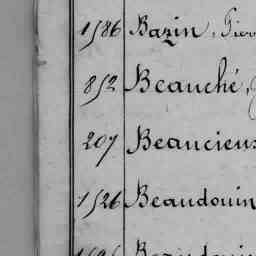 1586 Bazin, Pierr
852 Beauché,
207 Beauciens
1526 Beaudouin